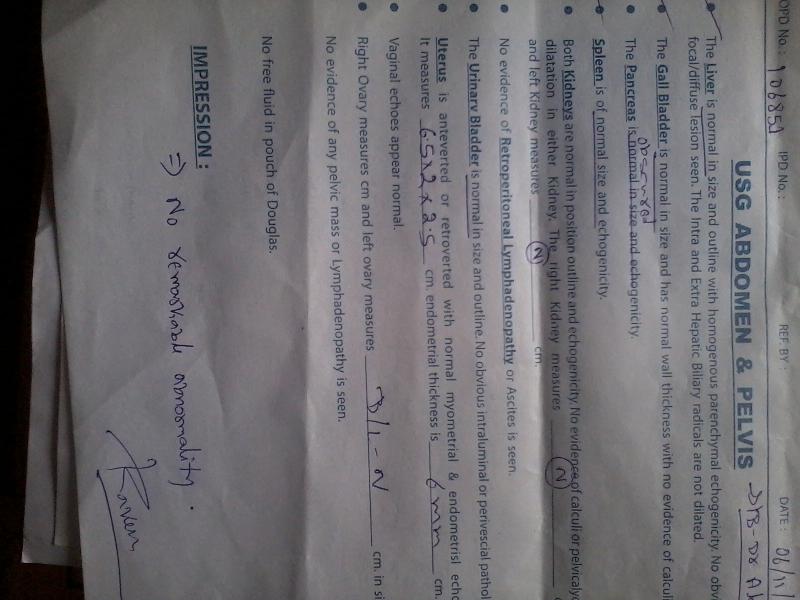 OPD No.: 106851 IPD No.: REF. BY: DATE: 06/11/
USG ABDOMEN & PELVIS
The Liver is normal in size and outline with homogenous parenchymal echogenicity. No obv
focal/diffuse lesion seen. The Intra and Extra Hepatic Biliary radicals are not dilated.
The Gall Bladder is normal in size and has normal wall thickness with no evidence of calculi
obscured
The Pancreas is normal in size and echogenicity.
Spleen is of normal size and echogenicity.
Both Kidneys are normal in position outline and echogenicity. No evidence of calculi or pelvicalyc
dilatation in either Kidney. The right Kidney measures N c
and left Kidney measures N cm.
No evidence of Retroperitoneal Lymphadenopathy or Ascites is seen.
The Urinary Bladder is normal in size and outline. No obvious intraluminal or perivescial pathol
Uterus is anteverted or retroverted with normal myometrial & endometrisl echo
It measures 6.5x2x2.5 cm. endometrial thickness is 6mm cm.
Vaginal echoes appear normal.
Right Ovary measures cm and left ovary measures B/L - N cm. in si
No evidence of any pelvic mass or Lymphadenopathy is seen.
No free fluid in pouch of Douglas.
IMPRESSION :
⇒ No remarkable abnormality.